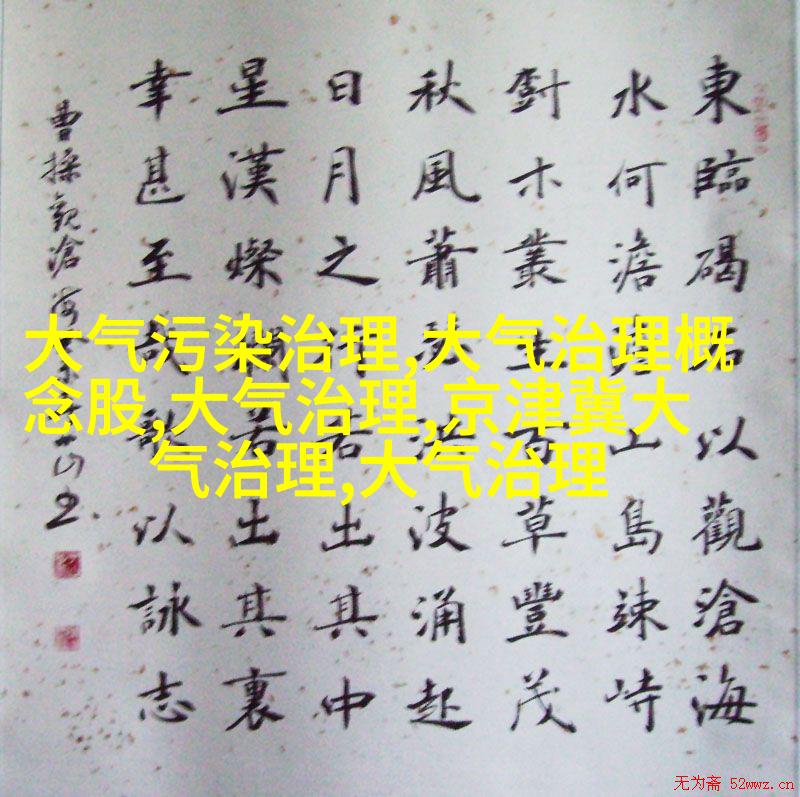 東臨碣石以觀滄海
水何澹澹山島竦峙
樹木叢生百草豐茂
秋風蕭瑟洪波涌起
日月之行若出其中
星漢燦爛若出其裏
幸甚至哉歌以詠志
曹操觀滄海
大气污染治理,大气治理概
念股,大气治理,京津冀大
气治理,大气治理
无为斋 52wwz.cn